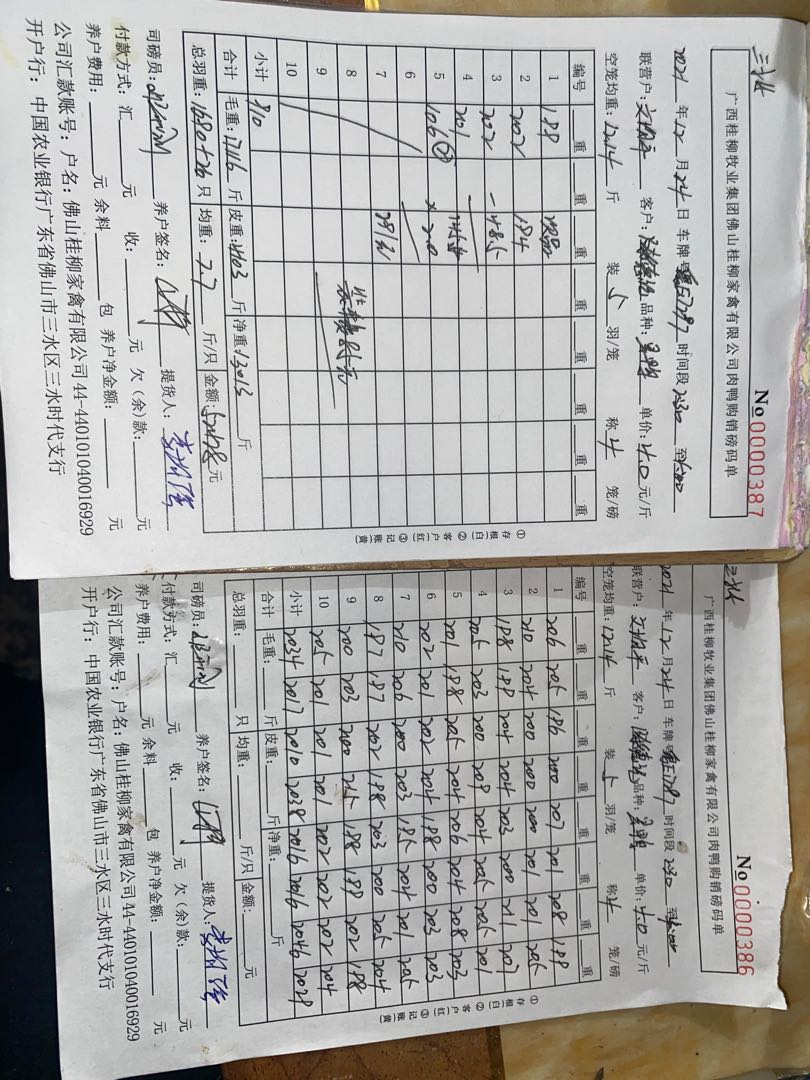 广西桂柳牧业集团佛山桂柳家禽有限公司肉鸭购销磅码单
No 0000387
2021 年 12 月 24 日 车牌号 时间段 2300 至
联营户: 客户: 品种: 单价: 4.0 元/斤
空笼均重: 12.14 斤 装 5 羽/笼 称 4 笼/磅
编号 重 重 重 重 重 重 重 重
1 188 次品
2 202 194
3 202 -48.5
4 201 145.5
5 106② ×2.0
6
7 291元
8
9
10
小计
合计 毛重: 17146 斤 皮重: 斤 净重: 13013 斤
总羽重: 1680+26 只 均重: 7.7 斤/只 金额: 元
司磅员: 养户签名: 提货人:
付款方式: 汇 元 收: 元 欠(余)款: 元
养户费用: 元 余料 包 养户净金额: 元
公司汇款账号: 户名: 佛山桂柳家禽有限公司 44-440101040016929
开户行: 中国农业银行广东省佛山市三水区三水时代支行
①存根(白) ②客户(红) ③记账(黄)
广西桂柳牧业集团佛山桂柳家禽有限公司肉鸭购销磅码单
No 0000386
2021 年 12 月 24 日 车牌号 时间段 2300 至
联营户: 客户: 品种: 单价: 4.0 元/斤
空笼均重: 12.14 斤 装 5 羽/笼 称 4 笼/磅
编号 重 重 重 重 重 重 重 重
1 206 205 186 200 207 201 208 188
2 210 204 200 200 200 201 201 205
3 188 188 204 204 203 200 211 207
4 205 203 200 209 204 205 205 201
5 201 188 205 204 206 204 208 203
6 202 201 202 204 198 200 203 203
7 210 206 200 203 195 204 201 205
8 187 187 202 188 203 200 205 204
9 200 203 200 215 188 188 202 188
10 205 201 201 201 202 202 202 204
小计 2034 2017 2010 2038 2016 2016 2046 2028
合计 毛重: 斤 皮重: 斤 净重: 斤
总羽重: 只 均重: 斤/只 金额: 元
司磅员: 养户签名: 提货人:
付款方式: 汇 元 收: 元 欠(余)款: 元
养户费用: 元 余料 包 养户净金额: 元
公司汇款账号: 户名: 佛山桂柳家禽有限公司 44-440101040016929
开户行: 中国农业银行广东省佛山市三水区三水时代支行
①存根(白) ②客户(红) ③记账(黄)